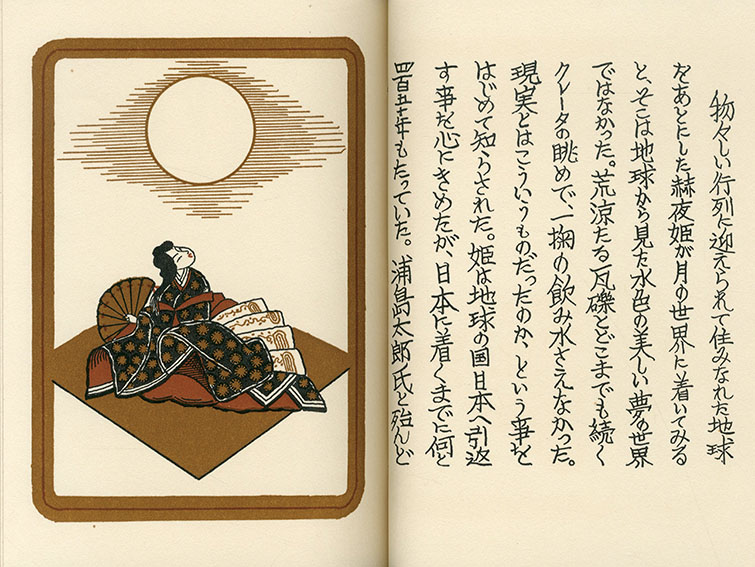 物々しい行列に迎えられて住みなれた地球
をあとにした赫夜姫が月の世界に着いてみる
と、そこは地球から見た水色の美しい夢の世界
ではなかった。荒涼たる瓦礫とどこまでも続く
クレータの眺めで、一掬の飲み水さえなかった。
現実とはこういうものだったのか、という事を
はじめて知らされた。姫は地球の国日本へ引返
す事を心にきめたが、日本に着くまでに何と
四百五十年もたっていた。浦島太郎氏と殆んど